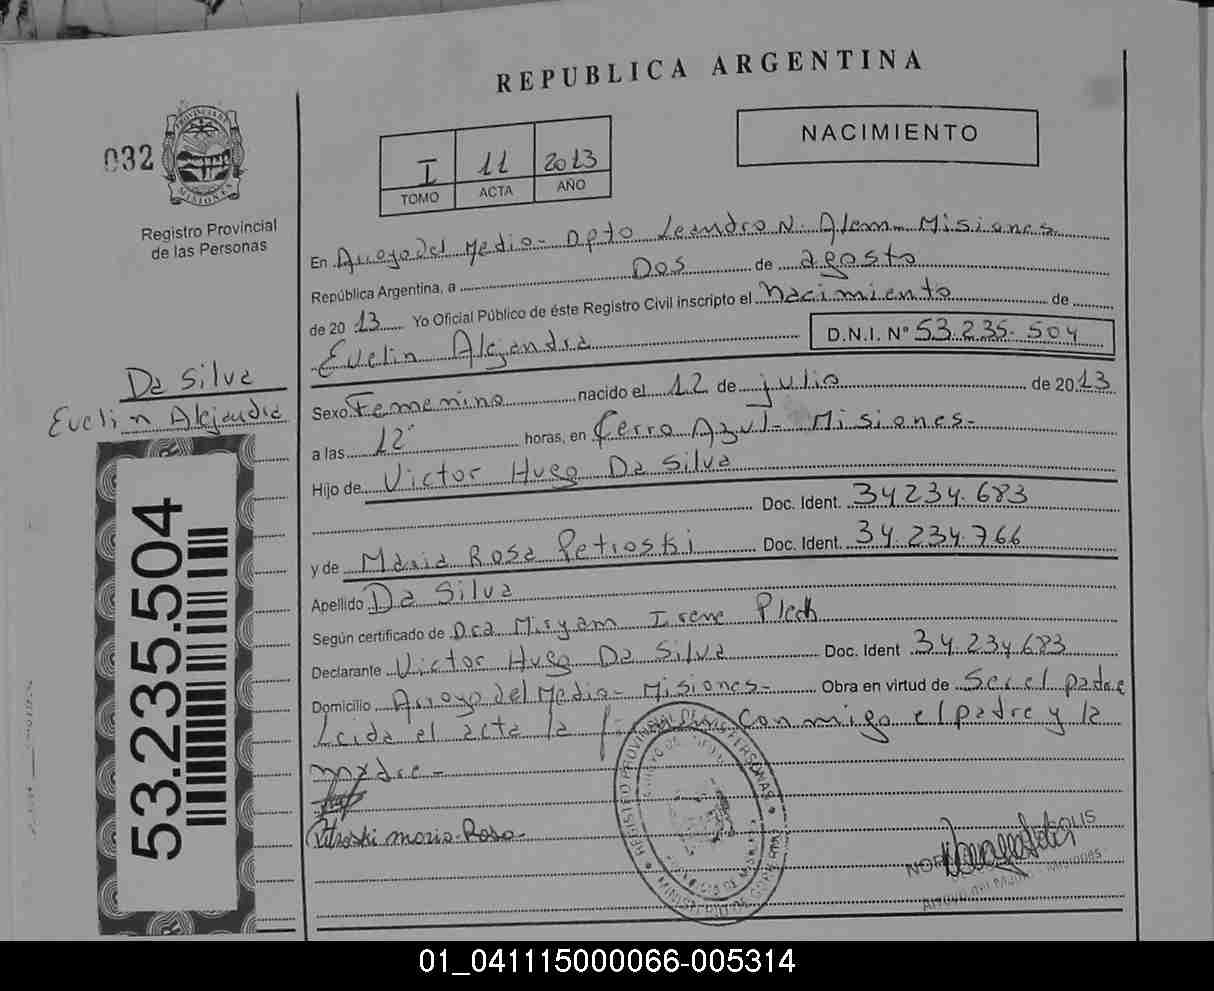 REPUBLICA ARGENTINA
032
PROVINCIA DE MISIONES
Registro Provincial
de las Personas
I 11 2013
TOMO ACTA AÑO
NACIMIENTO
En Arroyo del Medio - Dpto Leandro N. Alem - Misiones
República Argentina, a Dos de agosto
de 2013 Yo Oficial Público de éste Registro Civil inscripto el Nacimiento de
Evelin Alejandra D.N.I. Nº 53.235.504
Da Silva
Evelin Alejandra
Sexo Femenino nacido el 12 de julio de 2013
a las 12 horas, en Cerro Azul - Misiones -
Hijo de Victor Hugo Da Silva
Doc. Ident. 34.234.683
y de Maria Rosa Petroski Doc. Ident. 34.234.766
Apellido Da Silva
Según certificado de Dra Miryam Irene Plech
Declarante Victor Hugo Da Silva Doc. Ident 34.234.683
Domicilio Arroyo del Medio - Misiones - Obra en virtud de Ser el padre
Leida el acta la conmigo el padre y la
madre -
Petroski Maria Rosa
53.235.504
REGISTRO PROVINCIAL DE LAS PERSONAS
MINISTERIO DE GOBIERNO
Arroyo del Medio - Misiones
01_041115000066-005314